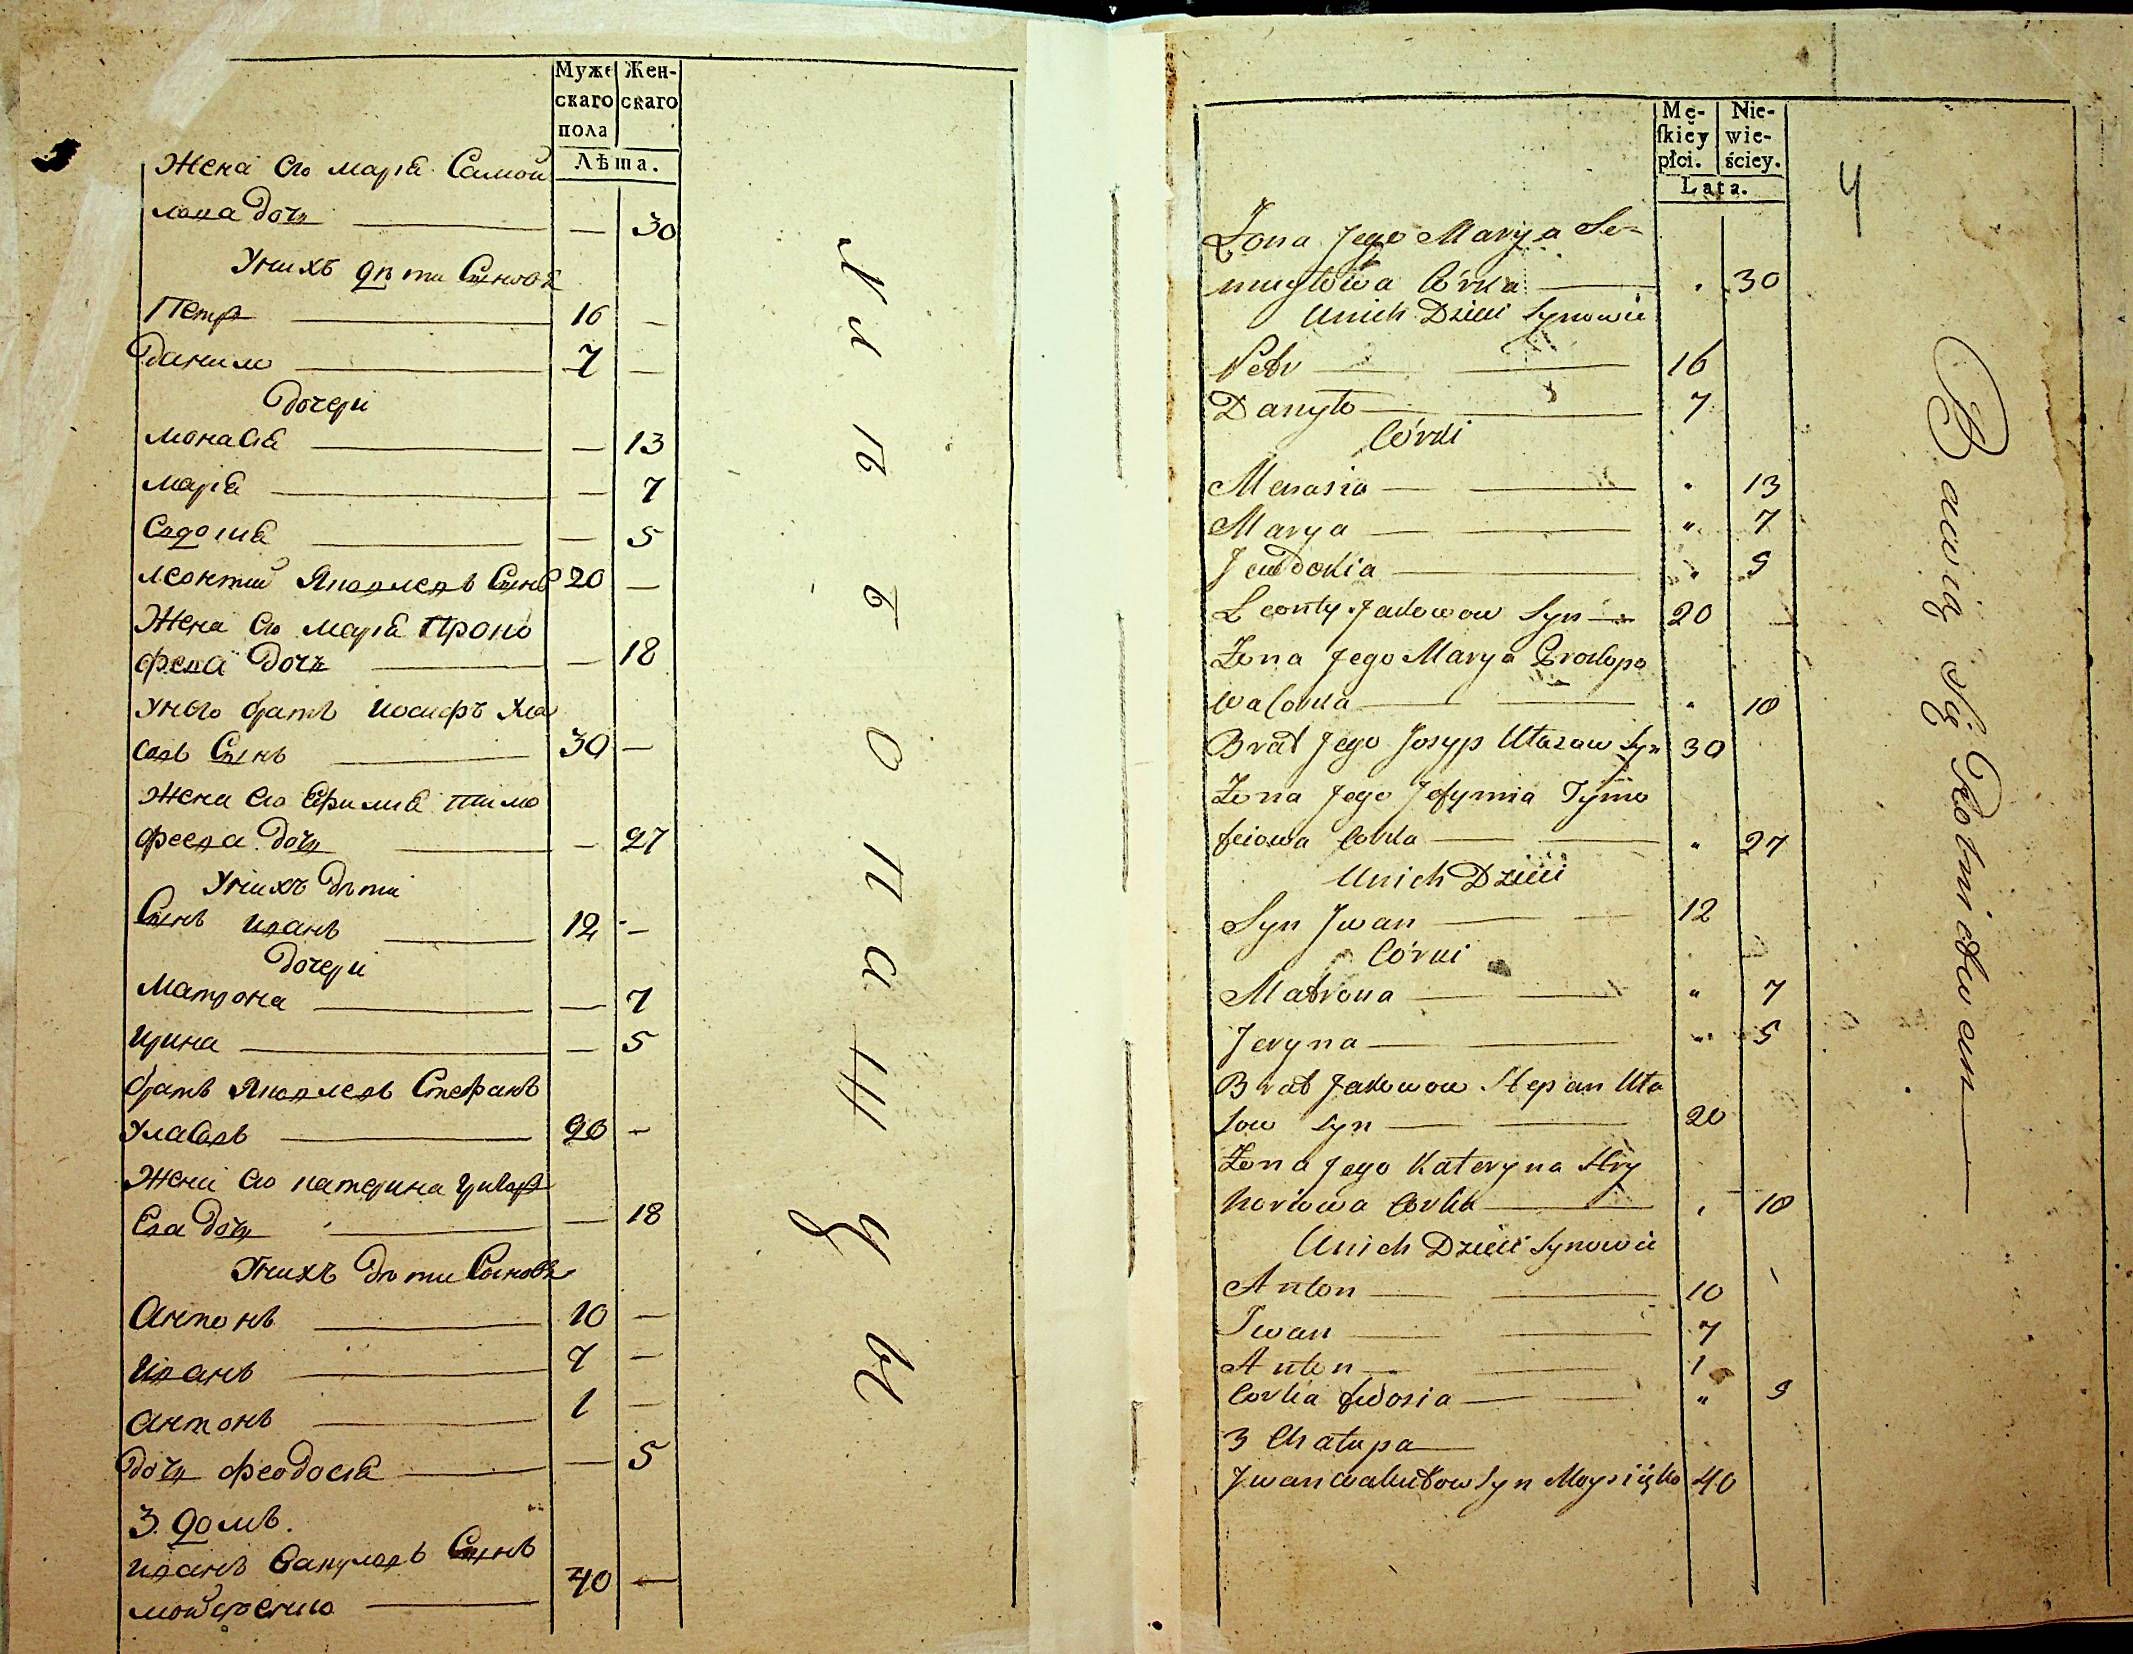 Муже
скаго
пола
Жен-
скаго
Лѣта.
Жена его марiа Самой
лова дочь — — 30
Унихъ дѣти Сыновѣ
Петр — 16 —
Данило — 7 —
дочери
Монасiа — — 13
марiа — — 7
Евдокиа — — 5
леонтий Яковлевъ Сынъ 20 —
Жена его марiа Проко
фева дочь — — 18
Унего братъ иосифъ Ула
совъ Сынъ — 30 —
Жена его Ефимiа тимо
феева дочь — — 27
Унихъ дѣти
Сынъ иванъ — 12 —
дочери
Матрона — — 7
ирина — — 5
братъ Яковлевъ Стефанъ
Улавовъ — 20 —
Жена его катерина григор
ева дочь — — 18
Унихъ дѣти Сыновѣ
Антонъ — 10 —
иванъ — 7 —
антонъ — 1 —
дочь феодосiа — — 5
3. домъ.
иванъ Вакуловъ Сынъ 40 —
мойсеенко —
Клѣбопашцы
4
Mę-
skiey
płci.
Nie-
wie-
ściey.
Lata.
Żona Jego Marya Sa-
muylowa Córka — 30
Unich Dzieci Synowie
Petr — 16
Danyło — 7
Córki
Menasia — " 13
Marya — " 7
Jewdokia — " 5
Leonty Jakowow Syn — 20
Żona Jego Marya Prokopo
wa Corka — " 18
Brat Jego Josyp Ułasow Syn 30
Żona Jego Jefymia Tymo
feiowa Corka — " 27
Unich Dzieci
Syn Jwan — 12
Córki
Matrona — " 7
Jeryna — " 5
Brat Jakowow Stepan Uła
sow Syn — 20
Żona Jego Kateryna Hry
horiowa Corka — 18
Unich Dzieci Synowie
Anton — 10
Iwan — 7
Anton — 1
Corka fedosia — " 5
3 Chatupa
Jwan Wakułow Syn Moysiięko 40
Bawią Się Rolnictwem